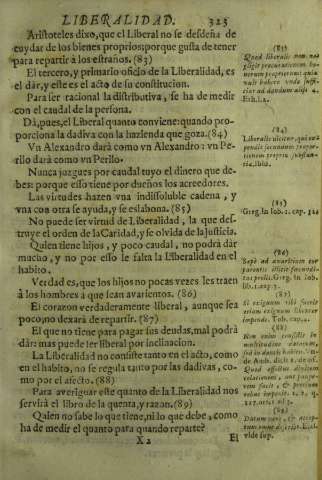 LIBERALIDAD. 323
Aristoteles dixo, que el Liberal no se desdeña de
cuydar de los bienes proprios; porque gusta de tener
para repartir à los estraños. (83)
El tercero, y primario oficio de la Liberalidad, es
el dár, y este es el acto de su constitucion.
Para ser racional la distributiva, se ha de medir
con el caudal de la persona.
Dà, pues, el Liberal quanto conviene: quando pro-
porciona la dadiva con la hazienda que goza. (84)
Vn Alexandro dará como vn Alexandro: vn Pe-
rillo dará como vn Perillo.
Nunca juzgues por caudal tuyo el dinero que de-
bes: porque esso tiene por dueños los acreedores.
Las virtudes hazen vna indissoluble cadena, y
vna con otra se ayuda, y se eslabona. (85)
No puede ser virtud de Liberalidad, la que des-
truye el orden de la Caridad, y se olvida de la Justicia.
Quien tiene hijos, y poco caudal, no podrá dàr
mucho, y no por esso le falta la Liberalidad en el
habito.
Verdad es, que los hijos no pocas vezes les traen
à los hombres à que sean avarientos. (86)
El corazon verdaderamente liberal, aunque sea
poco, no dexará de repartir. (87)
El que no tiene para pagar sus deudas, mal podrà
dàr: mas puede ser liberal por inclinacion.
La Liberalidad no consiste tanto en el acto, como
en el habito, no se regula tanto por las dadivas, co-
mo por el afecto. (88)
Para averiguar este quanto de la Liberalidad nos
servirá el libro de la quenta, y razon. (89)
Quien no sabe lo que tiene, ni lo que debe, como
ha de medir el quanto para quando reparte?
X2 El
(83)
Quod liberalis non ne-
gligit procurationem bo-
norum propriorum: qui
nult habere unde suffi-
ciat ad dandum aliis 4.
Eth. l. 2.
(84)
(85)
Greg. in Iob. 1. cap.
(86)
(87)
(88)
(89)